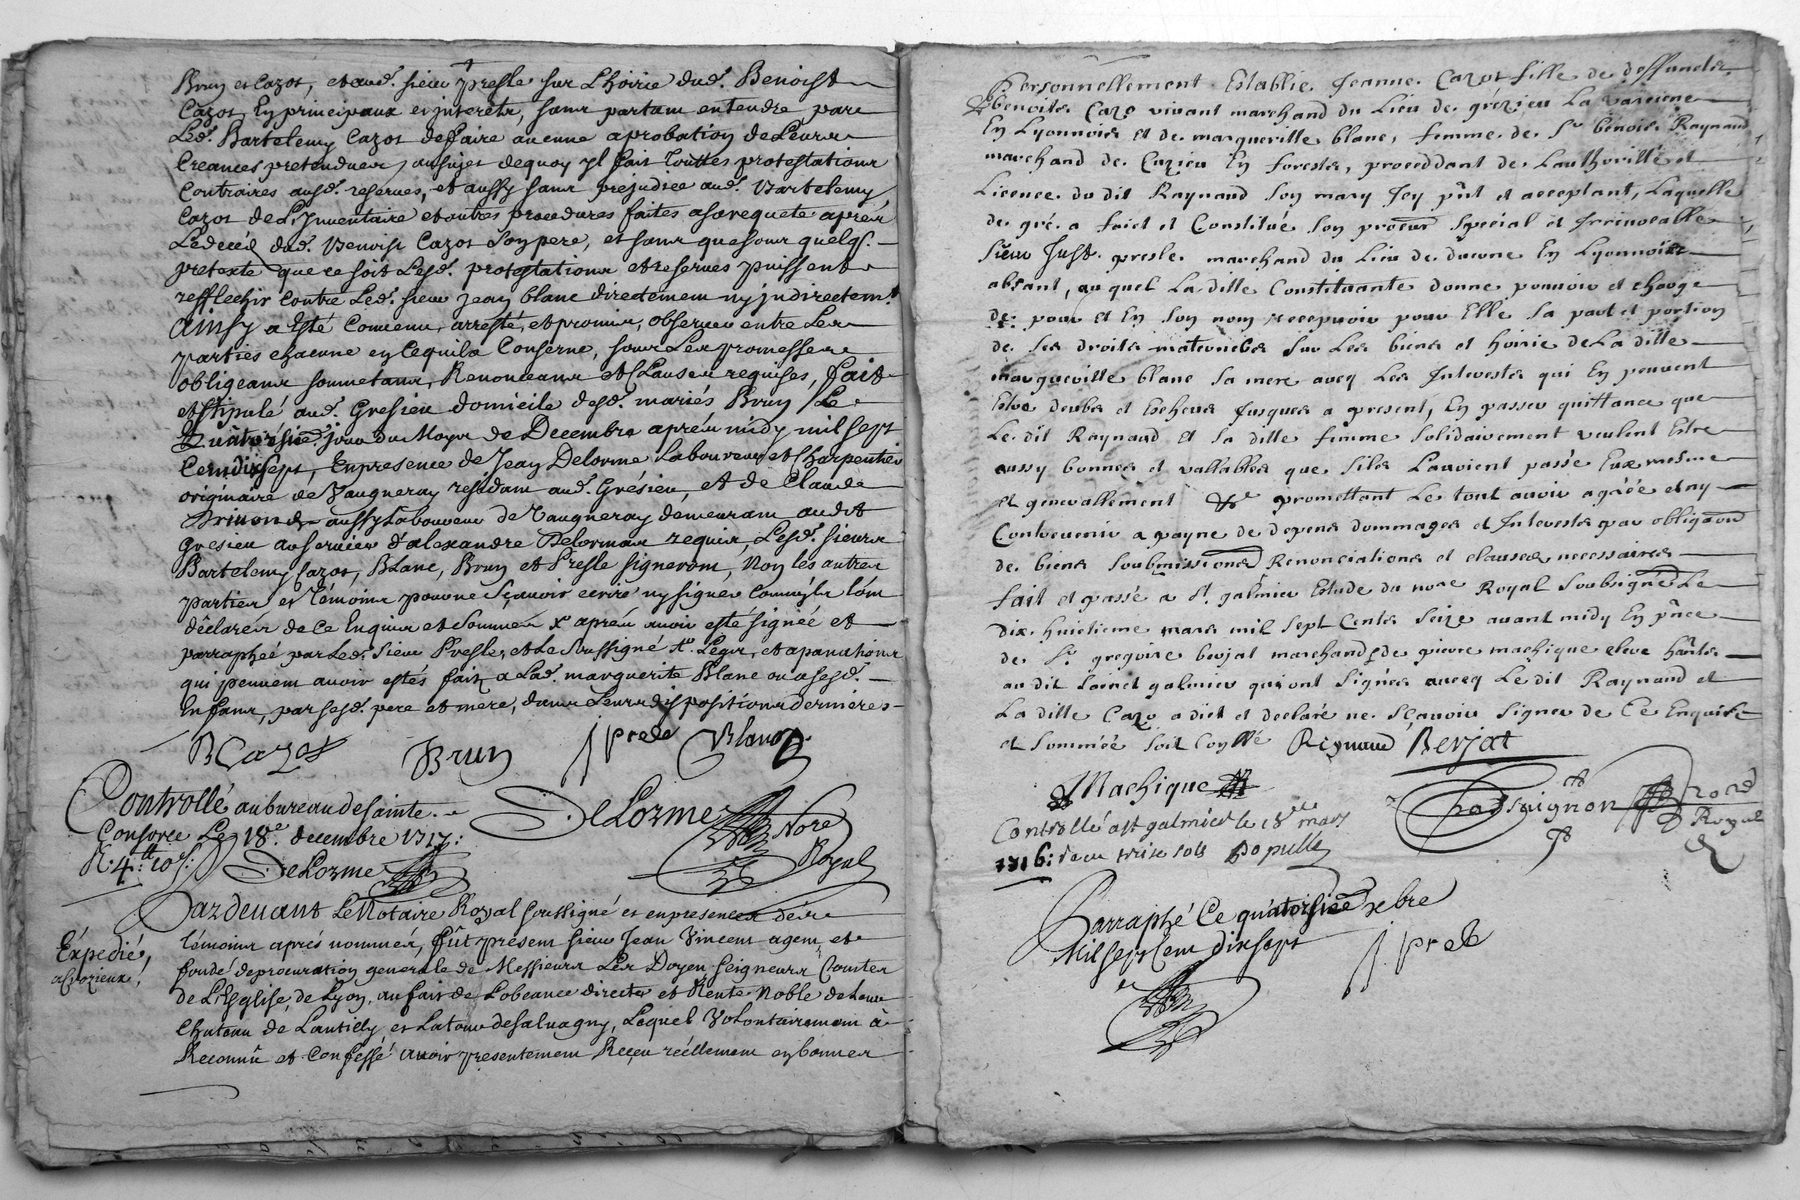 Brun et Cazot, et aud. sieur Presle sur L'hoirie dud. Benoist
Cazot, En principaux et interets, sans partam entendre par
Led. Bartelemy Cazot de faire aucune aprobation de Leurs
Creances pretendues, au sujet dequoy yl fait touttes protestations
Contraires ausd. reserves, et aussy sans prejudice aud. Bartelemy
Cazot de L'Inventaire et autres procedures faites a sa requete apres
Le deced dud. Benoist Cazot son pere, et sans que sous quelq.
pretexte que ce soit Lesd. protestations et reserves puissent
refflechir contre Led. sieur jean blanc directemem ny jndirectem.t
ainsy a Esté Convenu, arresté, et promis, observer entre Les
parties chacune en Cequila Conserne, sous Les promesses
obligeans soumetans, Renonceans et Clauses requises, fait
et stipulé aud. Gresieu domicile desd. mariés Brun Le
Quatorsie. jour du Moys de Decembre aprés midy mil sept
Cem dix sept, En presence de Jean Delorme Laboureur et Charpentier
originaire de Vaugneray residam aud. Grésieu, et de Claude
aussy Laboureur de Vaugneray demeuram audit
Gresieu au service d'alexandre Delormas requis, Lesd. sieurs
Bartelemy Cazot, Blanc, Brun et Presle signeront, Non les autres
parties et témoins pour ne sçavoir ecrire ny signer comme ils l'om
déclarés de ce Enquis et sommés & aprés avoir esté signée et
parraphée par Led. sieur Presle, et Le soussigné
qui peuvem avoir estés fait a Lad. marguerite Blanc ou a sesd.
Enfans, par sesd. pere et mere, dans Leurs dispositions dernieres
BCazot Brun J presle Blanc
Controllé au bureau de sainte
Consorce Le 18e. decembre 1717:
R 4:tt 10s: DeLorme
DeLorme Nore
Royal
Pardevant Le Notaire Royal soussigné et en presence des
témoins aprés nommés, fût present sieur Jean Vincent agem et
fondé de procuration generale de Messieurs Les Doyen seigneurs Comtes
de L'Eglise de Lyon, au fait de L'obeance directe et Rente Noble de Leur
Chateau de Lantilly et La tour de salvagny, Lequel Volontairemem à
Reconnû et Confessé avoir presentemem Reçeu réellemem en bonnes
Expedié,
Personnellement Establie Jeanne Cazot fille de deffuncts
benoits Cazo vivant marchand du Lieu de grézieu La varenne
En Lyonnois et de margueritte blanc, femme de Sr benois Raynaud
marchand de Cuzieu En forests, proceddant de Lauthoritté et
Licence du dit Raynaud son mary Icy pñt et acceptant, Laquelle
de gré a faict et Constitué son procur special et Irrevocable
sieur Just presle marchand du Lieu de ducrne En Lyonnois
absant, au quel La ditte Constituante donne pouvoir et charge
de pour et En son nom recepvoir pour Elle sa part et portion
de ses droits maternels sur Les biens et hoirie de La ditte
margueritte blanc sa mere avecq Les Interests qui En peuvent
Estre deubs et Escheus Jusques a present, En passer quittance que
Le dit Raynaud et sa ditte femme solidairement veulent Estre
aussy bonnes et vallables que sils Lavoient passée Eux mesme
et generallement &c promettant Le tout avoir agréé et ny
Contrevenir a payne de depens dommages et Interests par obligaon
de biens soubmissions Renonciations et clauses necessaires
fait et passé a St galmier Estude du nore Royal soubsigné Le
dix huictieme mars mil sept Cents seize avant midy En pñce
de Sr gregoire berjat marchand & de pierre machique clerc hants
au dit sainct galmier qui ont signés avecq Le dit Raynaud et
La ditte Cazo a dict et declaré ne sçavoir signer de Ce Enquise
et sommée soit Conllé Reynaud Berjat
Machique
Controllé a st galmier le 18e mars
1716: receu treize sols
nore
Royal
Parraphé Ce quatorsiée xbre
Mil sept Cem dix sept J. presle